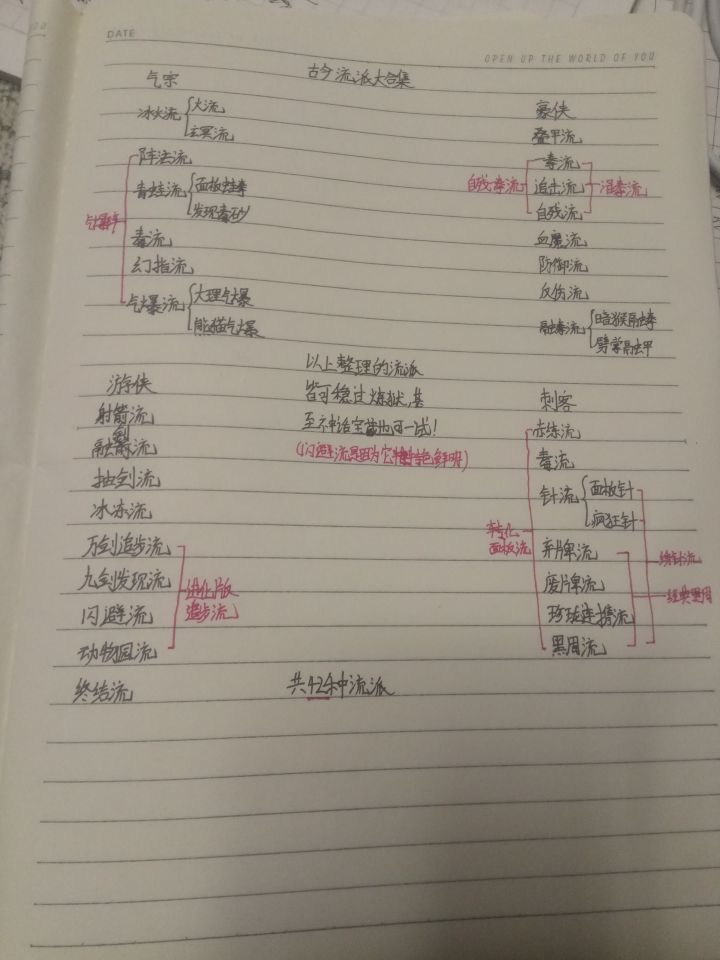 DATE
OPEN UP THE WORLD OF YOU
古今流派大合集
气宗
冰火流
火流
玄冥流
阵法流
青蛙流
面板蛙毒
发现毒砂
毒流
幻指流
气爆流
大理气爆
熊猫气爆
豪侠
叠甲流
毒流
自残毒流
追击流
混毒流
自残流
血魔流
防御流
反伤流
融毒流
暗猴融毒
劈掌融甲
以上整理的流派
皆可稳过炼狱,甚
至不神话宝藏也可一试!
(闪避流是因为它特色鲜明)
游侠
射箭流
融剑流
抽剑流
冰冻流
万剑追步流
九剑发现流
闪避流
动物园流
进化版
追步流
终结流
刺客
赤练流
毒流
针流
面板针
疯狂针
转化
面板流
弃牌流
废牌流
玲珑连携流
黑周流
经典黑周
共42种流派